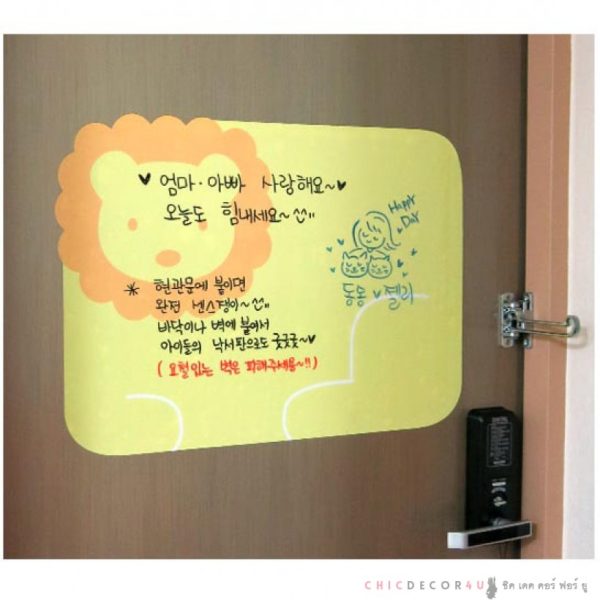 ♥ 엄마·아빠 사랑해요~♥
오늘도 힘내세요~ ^^"
HAPPY
DAY
동몽 ♥ 젤리
* 현관문에 붙이면
완전 센스쟁이~ ^^
바닥이나 벽에 붙여서
아이들의 낙서판으로도 굿굿굿~♥
( 요철있는 벽은 피해주세용~!! )
CHICDECOR4U ชิค เดค คอร์ ฟอร์ ยู